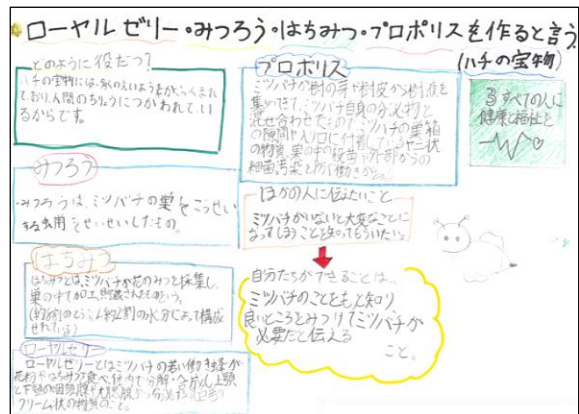 ローヤルゼリー・みつろう・はちみつ・プロポリスを作ると言う
(ハチの宝物)
どのように役だつ?
ハチの宝物には、多くのえいようがふくまれ
ており、人間のちりょうにつかわれてい
るからです。
みつろう
・みつろうは、ミツバチの巣をこうせい
する をせいせいしたもの。
はちみつ
はちみつとは、ミツバチが花のみつを採集し、
巣の中で加工、貯蔵されたものをいう。
(約8割のとう 、約2割の水分によって構成
されている)
ローヤルゼリー
ローヤルゼリーとはミツバチの若い働き蜂が
花粉やはちみつを食べ、体内で分解・合成し、上顎
と下 から分 する
クリーム状の物質のこと。
プロポリス
ミツバチが樹の芽や樹皮から樹液を
集めてきて、ミツバチ自身の分泌物と
混ぜ合わせたもの!ミツバチの巣箱
の隙間や入り口に付着しているヤニ状
の物質 巣の中の殺菌や外部からの
細菌汚染を防ぐ働きが
ほかの人に伝えたいこと
ミツバチがいないと大変なことに
なってしまうことを知ってもらいたい。
自分たちができることは、
ミツバチのことをもっと知り
良いところをみつけてミツバチが
必要だと伝える
こと。
3 すべての人に
健康と福祉を